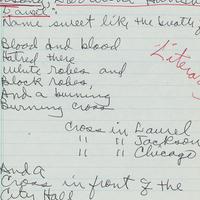 Laurel:
Name sweet like the breath
Blood and blood
Hatred there
White robes and
Black robes,
And a burning
Burning cross
cross in Laurel
" " Jackson
" " Chicago
And a
Cross in front of the
City Hall
Literary